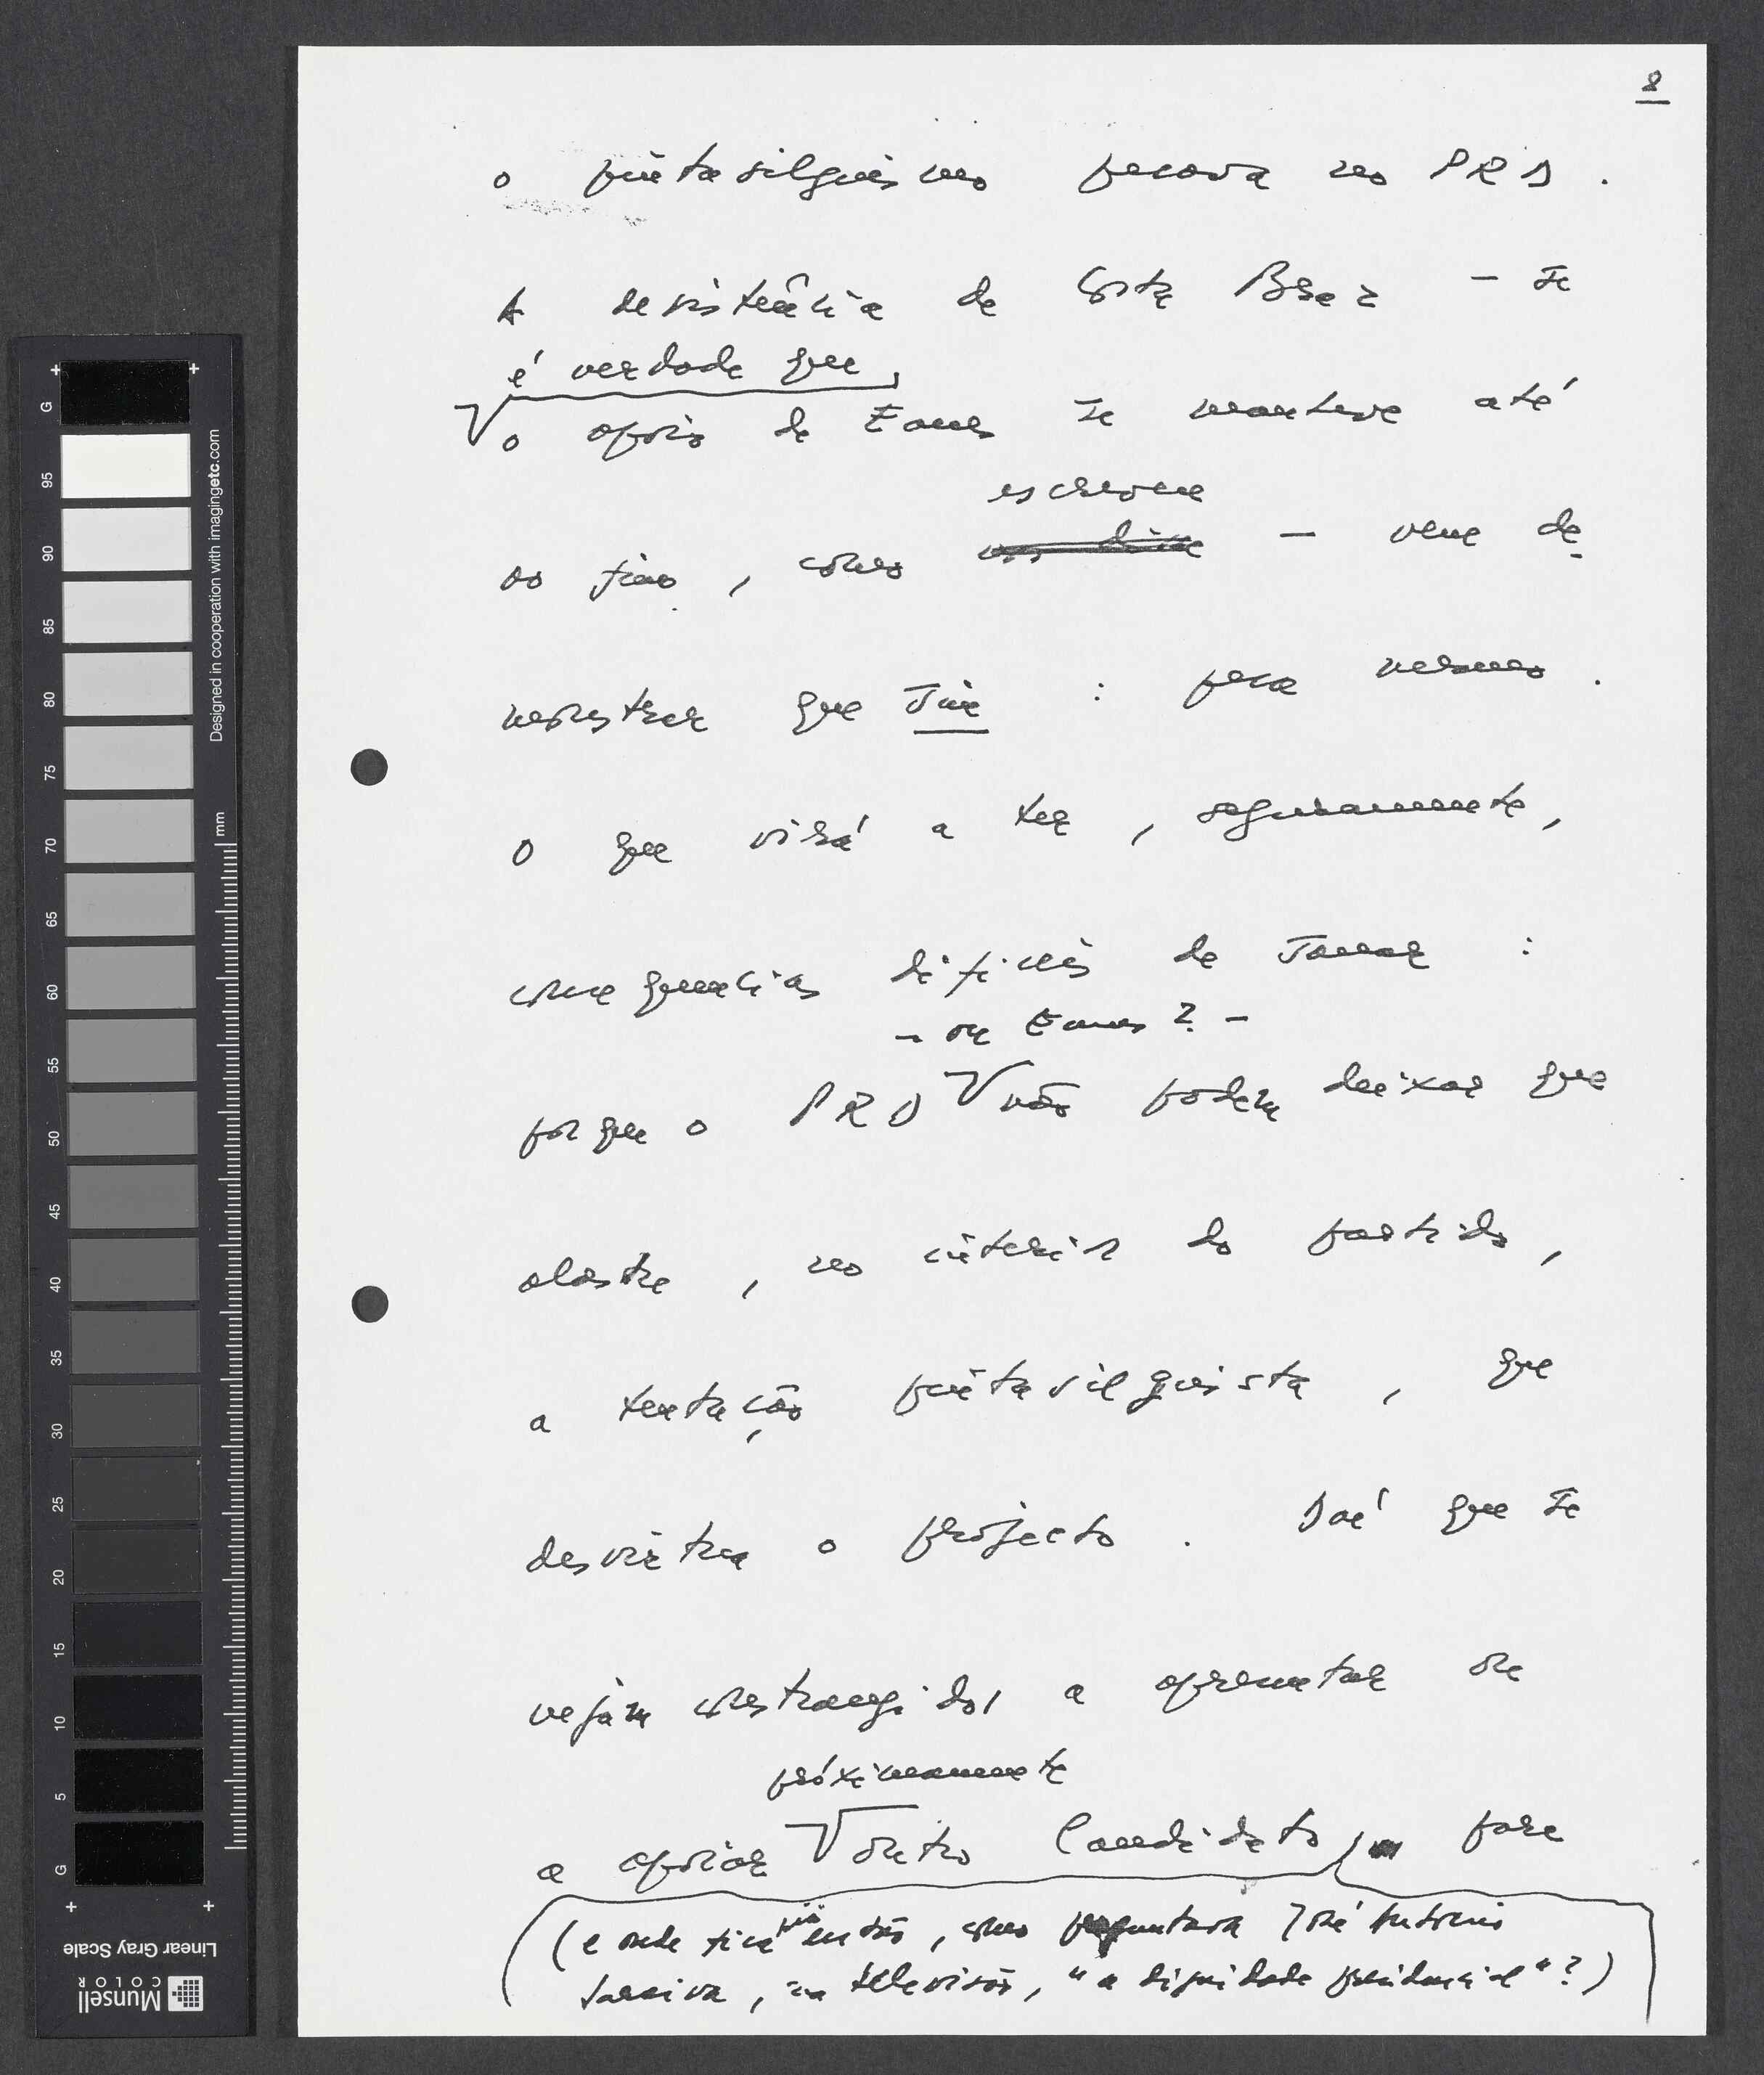 8
o pintasilguismo pecava no PRD.
A desistência de Costa Braz – se
é verdade que
o apoio de Eanes se manteve até
escreveu
ao fim, como nos disse – vem de
monstrar que sim : pesa mesmo.
O que virá a ter, seguramente,
consequências difíceis de sanar :
– ou Eanes? –
porque o PRD não podem deixar que
alastre, no interior do partido,
a tentação pintasilguista, que
desvirtua o projecto. Daí que se
vejam constrangidos a apresentar ou
próximamente
a apoiar outro Candidato, para
(e onde ficará então, como perguntava José António
Saraiva, na televisão, "a dignidade presidencial"?)
Designed in cooperation with imagingetc.com
mm
G
95
90
85
80
75
70
65
60
55
50
45
40
35
30
25
20
15
10
5
G
Linear Gray Scale
Munsell
COLOR